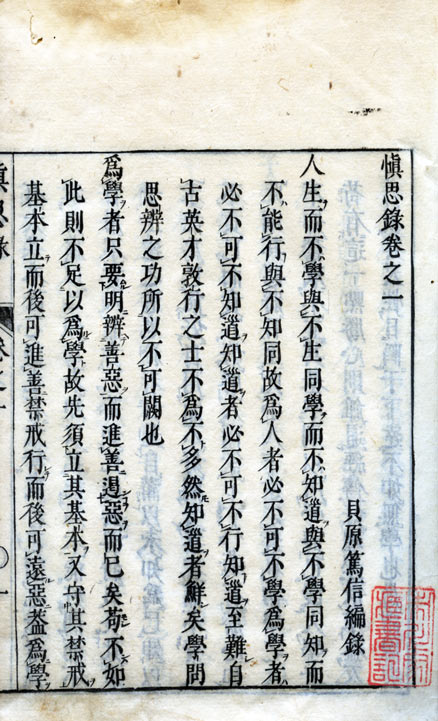 愼思錄卷之一
貝原篤信編錄
人生而不學與不生同學而不知道與不學同知而
不能行與不知同故爲人者必不可不學爲學者
必不可不知道知道者必不可不行知道至難自
古英才敦行之士不爲不多然知道者鮮矣學問
思辨之功所以不可闕也
爲學者只要明辨善惡而進善遏惡而已矣苟不如
此則不足以爲學故先須立其基本又守其禁戒
基本立而後可進善禁戒行而後可遠惡蓋爲學
愼思錄 卷之一 一